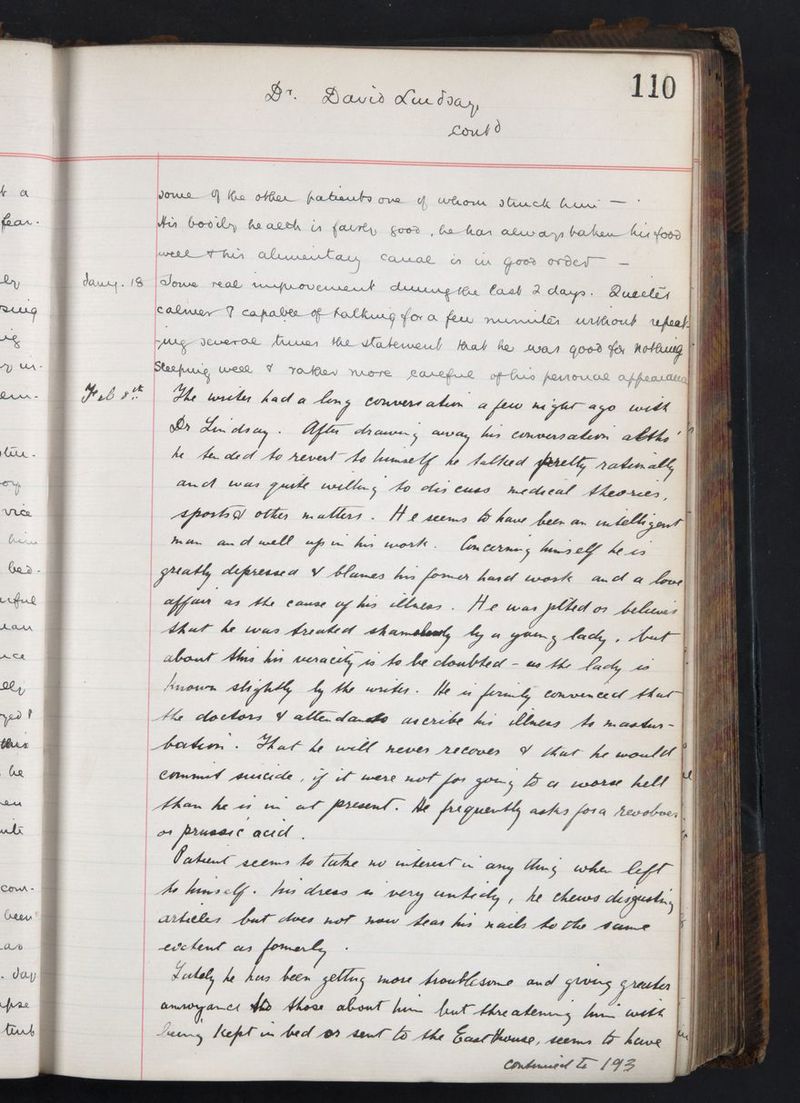 110
Dr. David Lindsay
contd
some of the other patients one of whom struck him —
His bodily health is fairly good, he has always taken his food
well & his alimentary canal is in good order —
Jany. 18 Some real improvement during the last 2 days. Quieter
calmer & capable of talking for a few minutes without repeat-
-ing several times the statement that he was good for nothing
Sleeping well & rather more careful of his personal appearance
Feb 8th The writer had a long conversation a few night ago with
Dr Lindsay. After drawing away his conversation altho'
he tended to revert to himself he talked pretty rationally
and was quite willing to discuss medical theories,
sports & other matters. He seems to have been an intelligent
man and well up in his work. Concerning himself he is
greatly depressed & blames his former hard work and a love
affair as the cause of his illness. He was jilted or believes
that he was treated shamefully by a young lady, but
about this his veracity is to be doubted - as the lady is
known slightly by the writer. He is firmly convinced that
the doctors & attendants ascribe his illness to mastur-
bation. That he will never recover & that he would
commit suicide, if it were not for going to a worse hell
than he is in at present. He frequently asks for a revolver
or prussic acid.
Patient seems to take no interest in any thing when left
to himself. his dress is very untidy, he chews disgusting
articles but does not now tear his nails to the same
extent as formerly.
Lately he has been getting more troublesome and giving greater
annoyance to those about him but threatening him with
being kept in bed or sent to the East House, seems to have
continued to 193
t a
fear.
ly
ing
em-
vice
him
bed.
ful
nce
lly
&
this
he
com-
been
as
. day